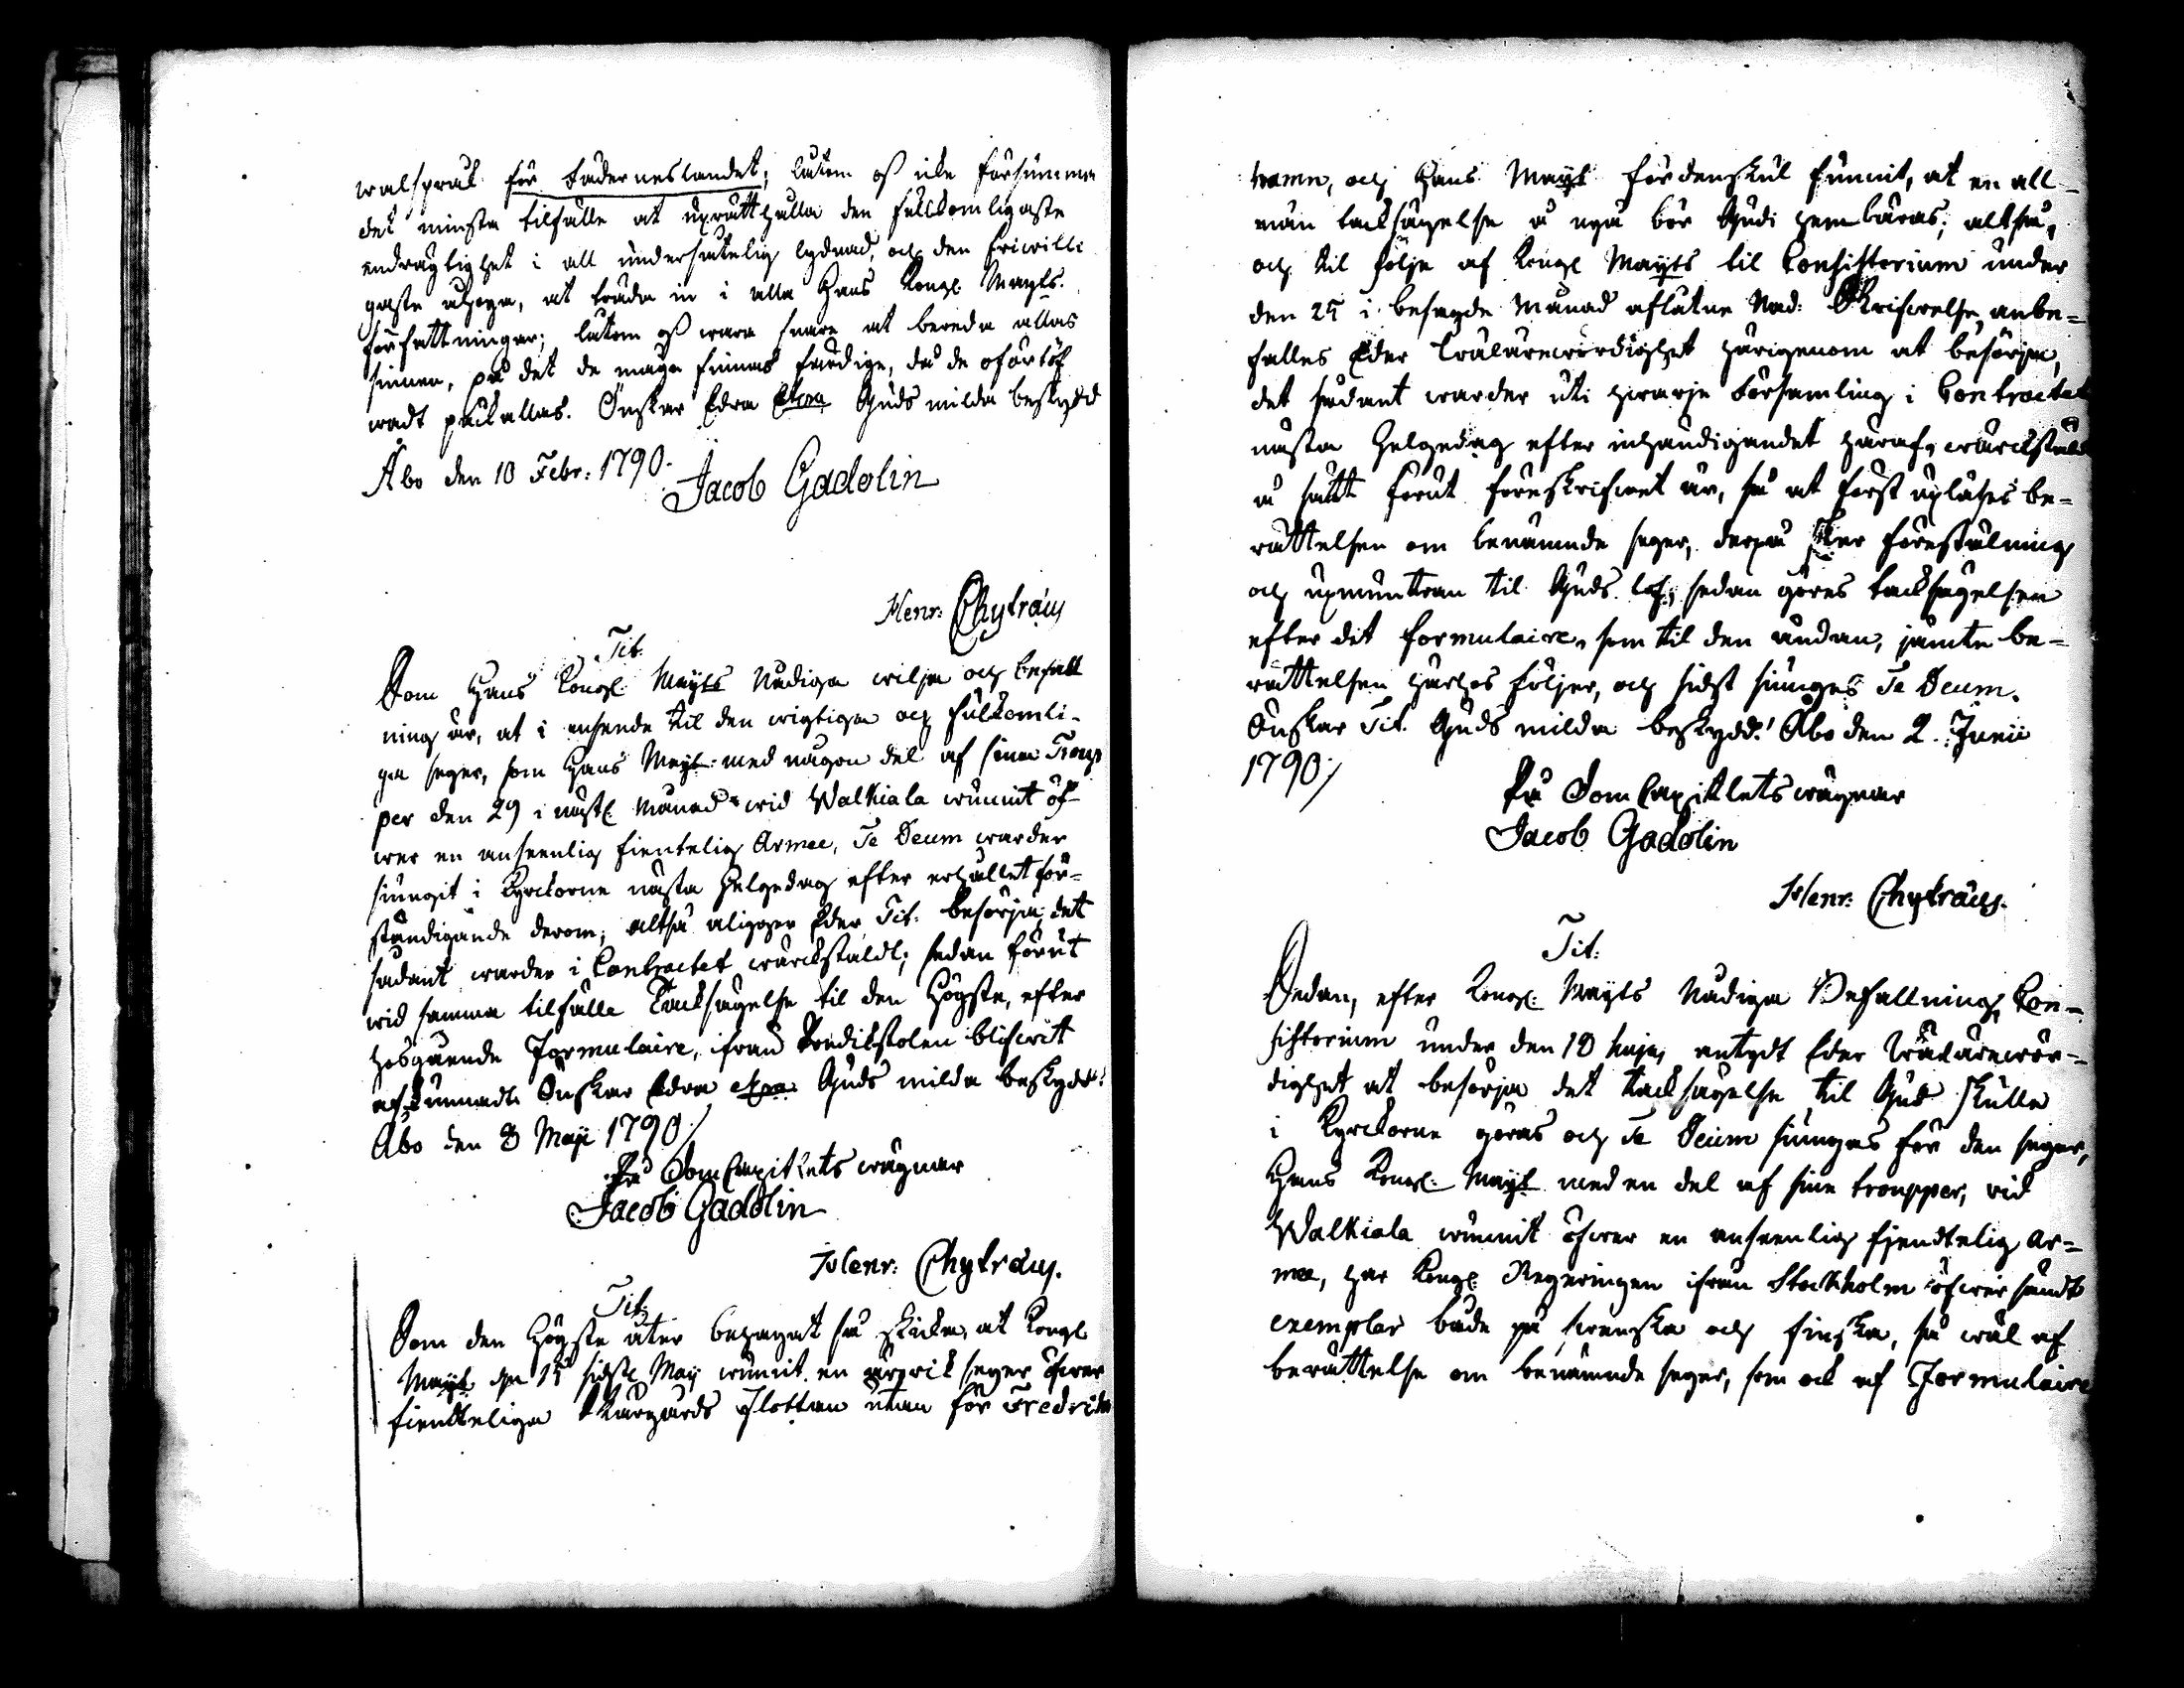 walspråk för Fäderneslandet; låtom oß icke försumma
det minsta tilfälle at uprätthålla den fullkomligaste
endrägtighet i all undersåtelig lydnad, och den friwilli
gaste åhoga, at träda in i alla Hans Kongl. Mayts.
författningar; låtom oß wara snare at bereda allas
sinnen, på det de måga finnas färdige, då de oförtöf
wadt påkallas. Önskar Edra Ehw. Guds milda beskydd
Åbo den 10 Febr: 1790.
Jacob Gadolin
Henr: Chytræus
Tit.
Som Hans Kongl. Mayts Nådiga wilja och befall
ning är, at i anseende til den wigtiga och fulkomli-
ga seger, som Hans Mayt. med någon del af sina Troup
per den 29 i nästl. Månad wid Walkiala wunnit öf-
wer en anseenlig fientelig Armee, Te Deum warder
siungit i Kyrckorne nästa Helgedag efter erhållet för-
ständigande derom; altså åligger Eder Tit. besörja, det
sådant warder i Contractet wärckstäldt; sedan förut
wid samma tilfälle Tacksägelse til den Högste, efter
hosgående Formulaire, ifrån Predikstolen blifwit
afkunnadt. Önskar Edra Guds milda beskydd!
Åbo den 8 Maji 1790
På DomCapitlets wägnar
Jacob Gadolin
Henr: Chytræus.
Tit.
Som den Högste åter behagat så skicka, at Kongl
Mayt den 15 sidstl. May wunnit en ärorik seger öfwer
fiendteliga Skärgårds Flottan utan för Fredrics
hamn, och Hans Mayt fördenskul funnit, at en all-
män tacksägelse å nya bör Gudi hembäras; altså,
och til följe af Kongl Mayts til Consistorium under
den 25 i besagde Månad aflåtne Nåd: Skrifwelse, anbe-
falles Eder Wälärewördighet härigenom at besörja,
det sådant warder uti hwarje Församling i Contractet
nästa Helgedag efter inhändigandet häraf, wärckstäld
å sätt förut föreskrifwet är, så at först upläses be-
rättelsen om benämnde seger, derpå sker föreställning
och upmuntran til Guds lof, sedan göres tacksägelsen
efter dit formulaire, som til den ändan, jämte be-
rättelsen härhos följer, och sidst siunges Te Deum.
Önskar Tit. Guds milda beskydd! Åbo den 2. Junii
1790
På Dom Capitlets wägnar
Jacob Gadolin
Henr: Chytræus.
Tit:
Sedan, efter Kongl. Mayts Nådiga Befallning, Con-
sistorium under den 18 hujus antydt Eder Wälärewör-
dighet at besörja det tacksägelse til Gud skulle
i Kyrckorne göras och Te Deum siunges för den seger,
Hans Kongl. Mayt med en del af sine troupper, vid
Walkiala wunnit öfwer en anseenlig fjendtelig Ar-
mee, har Kongl. Regeringen ifrån Stockholm öfwersändt
exemplar både på swenska och finska, så wäl af
berättelse om benämnde seger, som ock af Formulaire